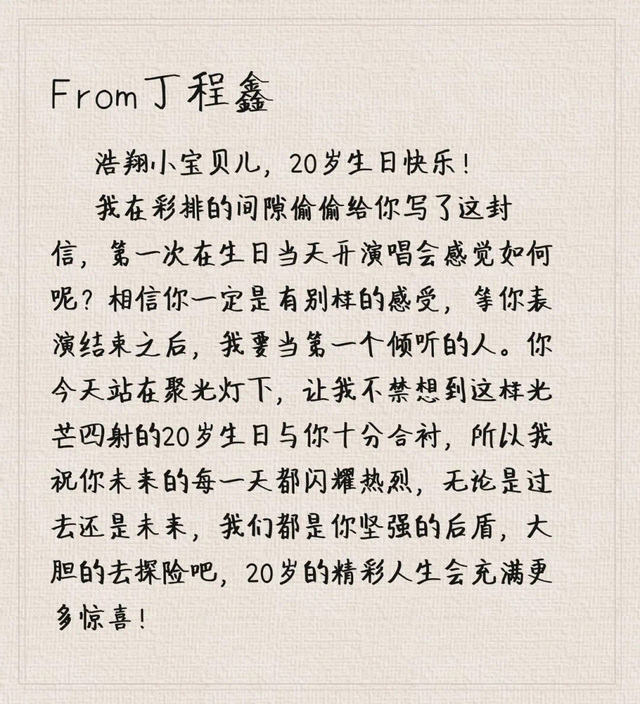 From丁程鑫
浩翔小宝贝儿，20岁生日快乐！
我在彩排的间隙偷偷给你写了这封
信，第一次在生日当天开演唱会感觉如何
呢？相信你一定是有别样的感受，等你表
演结束之后，我要当第一个倾听的人。你
今天站在聚光灯下，让我不禁想到这样光
芒四射的20岁生日与你十分合衬，所以我
祝你未来的每一天都闪耀热烈，无论是过
去还是未来，我们都是你坚强的后盾，大
胆的去探险吧，20岁的精彩人生会充满更
多惊喜！